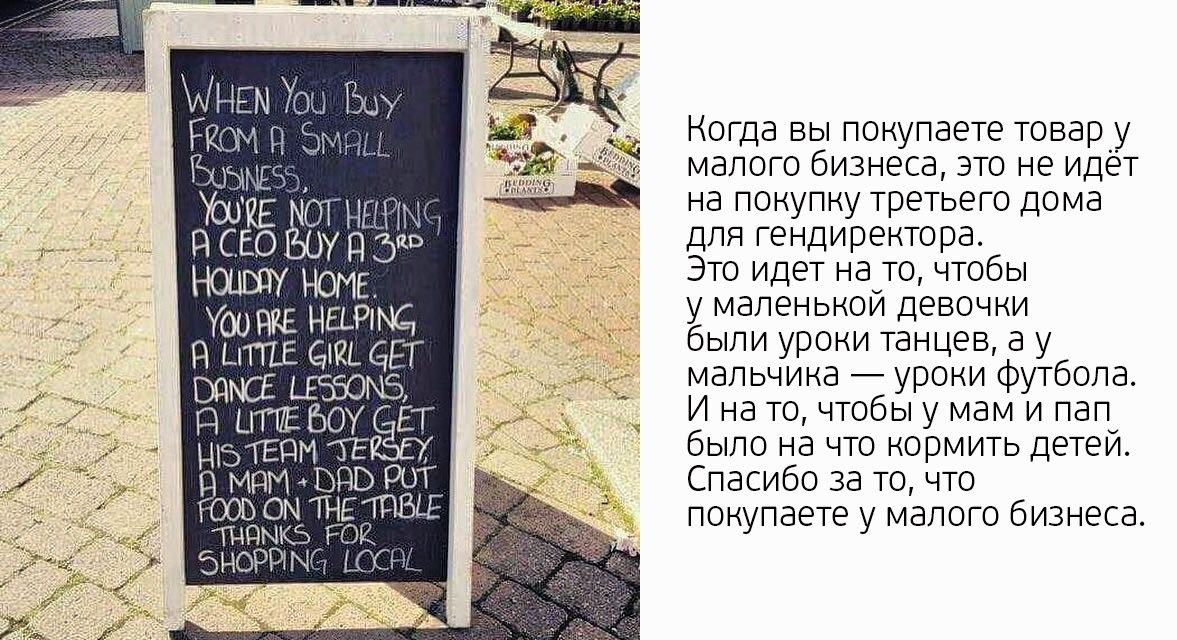 WHEN YOU BUY
FROM A SMALL
BUSINESS,
YOU'RE NOT HELPING
A CEO BUY A 3RD
HOLIDAY HOME.
YOU ARE HELPING
A LITTLE GIRL GET
DANCE LESSONS,
A LITTLE BOY GET
HIS TEAM JERSEY,
A MAM + DAD PUT
FOOD ON THE TABLE
THANKS FOR
SHOPPING LOCAL
BEDDING
PLANTS
BEDDING
PLANTS
Когда вы покупаете товар у
малого бизнеса, это не идёт
на покупку третьего дома
для гендиректора.
Это идет на то, чтобы
у маленькой девочки
были уроки танцев, а у
мальчика — уроки футбола.
И на то, чтобы у мам и пап
было на что кормить детей.
Спасибо за то, что
покупаете у малого бизнеса.